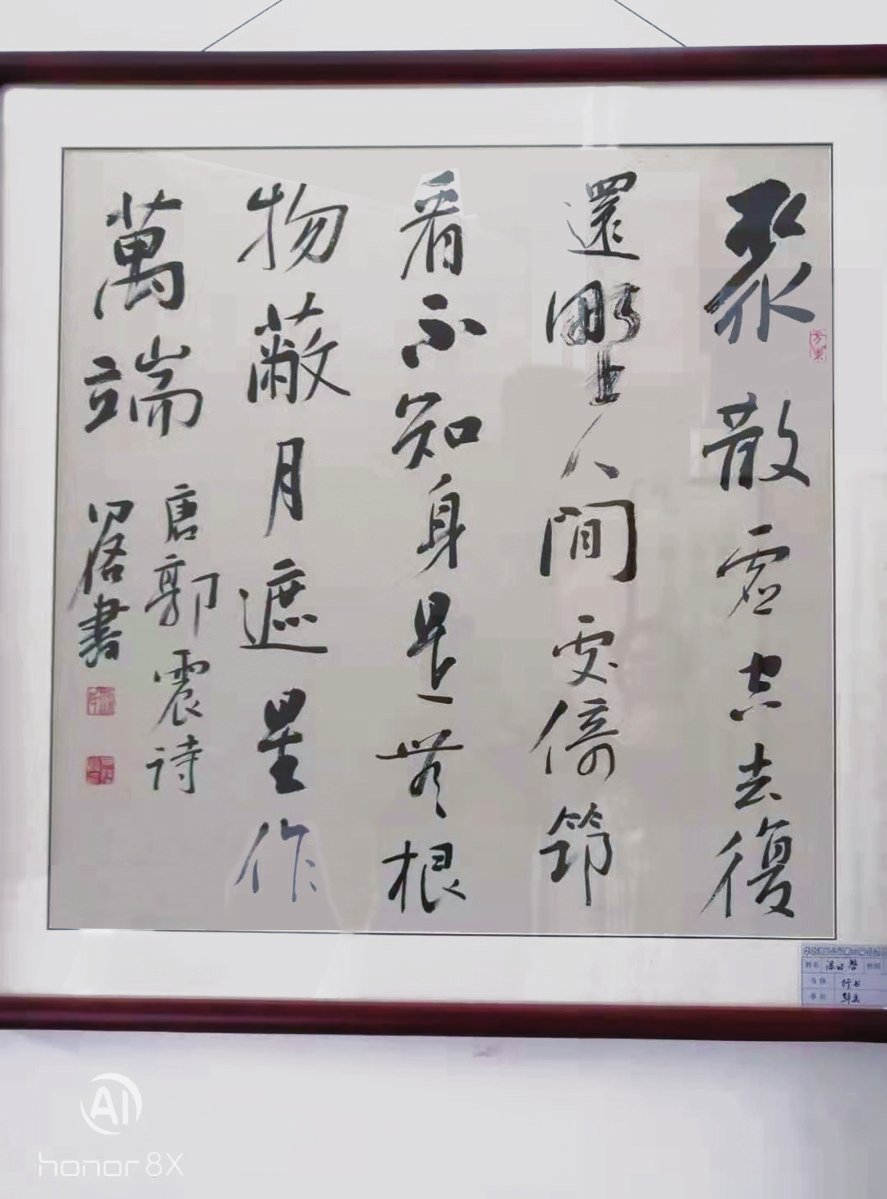 聚散虚空去復
還野人間處倚筇
看不知身是無根
物蔽月遮星作
萬端
唐郭震詩
書
姓名
行书
honor 8X
AI